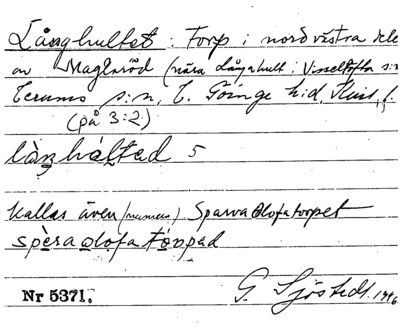 Långhultet : Torp i nordvästra dele
av Maglaröd (nära Långhult i Visseltofta s:n
Verums s:n, V. Göinge h:d,
(på 3:2)
làŋhàltad 5
Kallas även (numera) Sparva Olofatorpet
spèra olofa tòrpad
Nr 5371. G. Sjöstedt. 1946